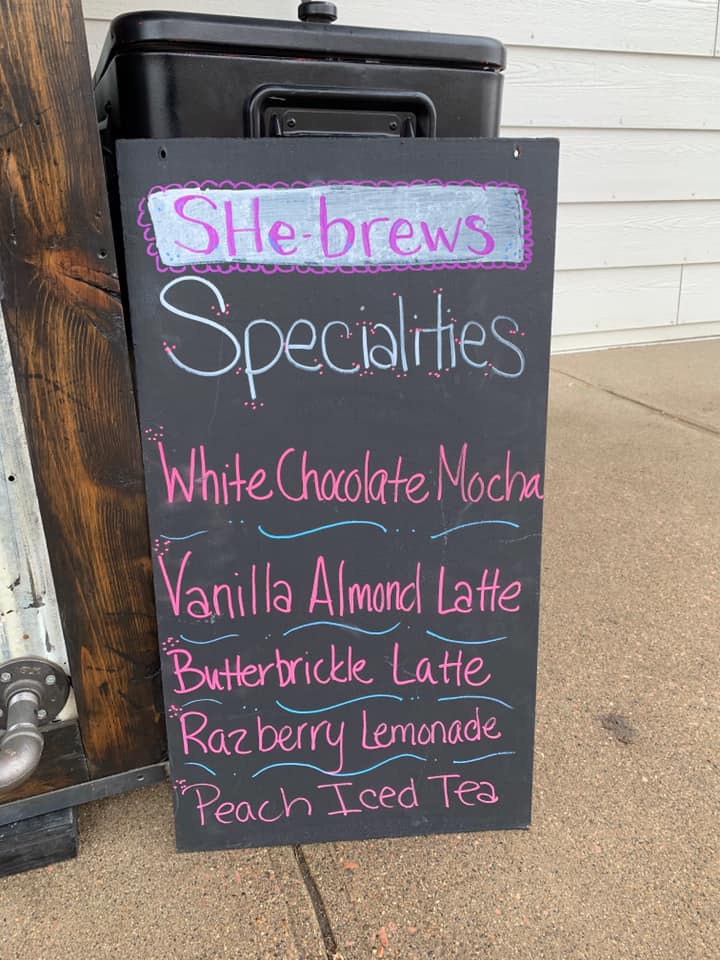 SHe-brews
Specialities
White Chocolate Mocha
Vanilla Almond Latte
Butterbrickle Latte
Razberry Lemonade
Peach Iced Tea